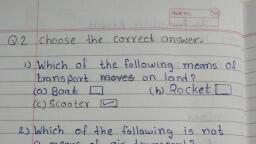 PAGE NO.
Q.2 Choose the correct answer.
1) Which of the following means of
transport moves on land?
(a) Boat (b) Rocket
(c) Scooter
2) Which of the following is not
a means of air